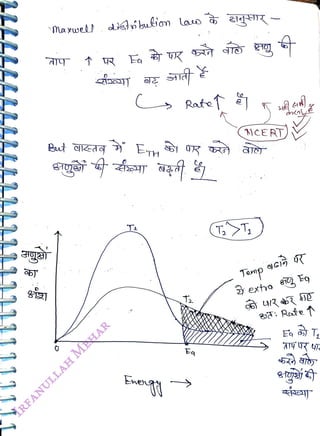 Maxwell distribution Law के अनुसार –
ताप ↑ पर Ea को पार करने वाले अणु की
संख्या बढ़ जाती है
↳ Rate↑ है।
NCERT
But वास्तव में ETH को पार करने वाले
अणुओं की संख्या बढ़ती है।
T2 > T1
अणुओं
का
अंश
T1
T2
Temp बढाने पर
ये extra अणु Ea
को पार कर गए
अतः Rate ↑
Ea को T2
ताप पर पार
करने वाले
अणुओं की
संख्या
0
Ea
Energy →
IRFANULLAH MEHAR